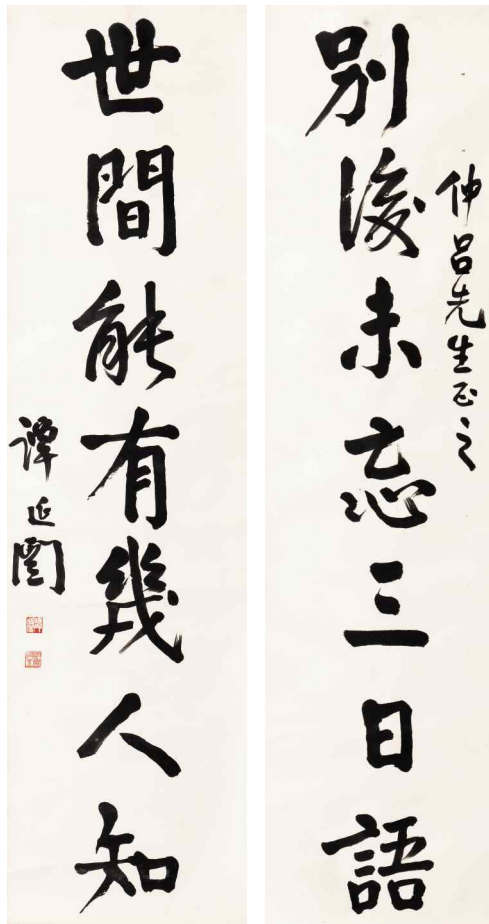 別後未忘三日語
仲呂先生正之
世間能有幾人知
譚延闓